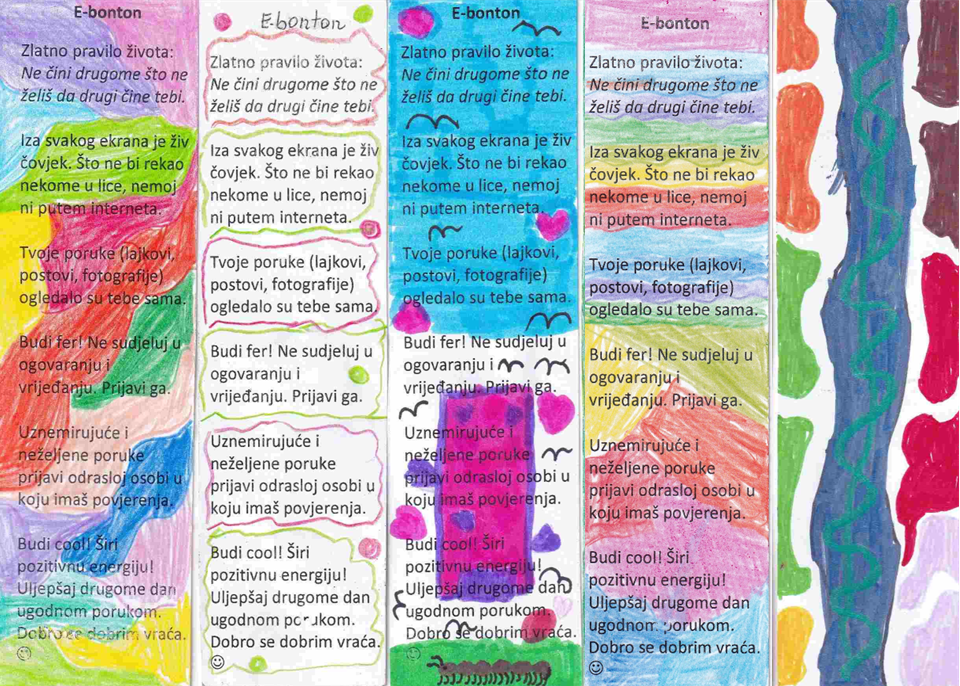 E-bonton
Zlatno pravilo života:
Ne čini drugome što ne
želiš da drugi čine tebi.
Iza svakog ekrana je živ
čovjek. Što ne bi rekao
nekome u lice, nemoj
ni putem interneta.
Tvoje poruke (lajkovi,
postovi, fotografije)
ogledalo su tebe sama.
Budi fer! Ne sudjeluj u
ogovaranju i
vrijeđanju. Prijavi ga.
Uznemirujuće i
neželjene poruke
prijavi odrasloj osobi u
koju imaš povjerenja.
Budi cool! Širi
pozitivnu energiju!
Uljepšaj drugome dan
ugodnom porukom.
Dobro se dobrim vraća.
☺
E-bonton
Zlatno pravilo života:
Ne čini drugome što ne
želiš da drugi čine tebi.
Iza svakog ekrana je živ
čovjek. Što ne bi rekao
nekome u lice, nemoj
ni putem interneta.
Tvoje poruke (lajkovi,
postovi, fotografije)
ogledalo su tebe sama.
Budi fer! Ne sudjeluj u
ogovaranju i
vrijeđanju. Prijavi ga.
Uznemirujuće i
neželjene poruke
prijavi odrasloj osobi u
koju imaš povjerenja.
Budi cool! Širi
pozitivnu energiju!
Uljepšaj drugome dan
ugodnom porukom.
Dobro se dobrim vraća.
☺
E-bonton
Zlatno pravilo života:
Ne čini drugome što ne
želiš da drugi čine tebi.
Iza svakog ekrana je živ
čovjek. Što ne bi rekao
nekome u lice, nemoj
ni putem interneta.
Tvoje poruke (lajkovi,
postovi, fotografije)
ogledalo su tebe sama.
Budi fer! Ne sudjeluj u
ogovaranju i
vrijeđanju. Prijavi ga.
Uznemirujuće i
neželjene poruke
prijavi odrasloj osobi u
koju imaš povjerenja.
Budi cool! Širi
pozitivnu energiju!
Uljepšaj drugome dan
ugodnom porukom.
Dobro se dobrim vraća.
☺
E-bonton
Zlatno pravilo života:
Ne čini drugome što ne
želiš da drugi čine tebi.
Iza svakog ekrana je živ
čovjek. Što ne bi rekao
nekome u lice, nemoj
ni putem interneta.
Tvoje poruke (lajkovi,
postovi, fotografije)
ogledalo su tebe sama.
Budi fer! Ne sudjeluj u
ogovaranju i
vrijeđanju. Prijavi ga.
Uznemirujuće i
neželjene poruke
prijavi odrasloj osobi u
koju imaš povjerenja.
Budi cool! Širi
pozitivnu energiju!
Uljepšaj drugome dan
ugodnom porukom.
Dobro se dobrim vraća.
☺